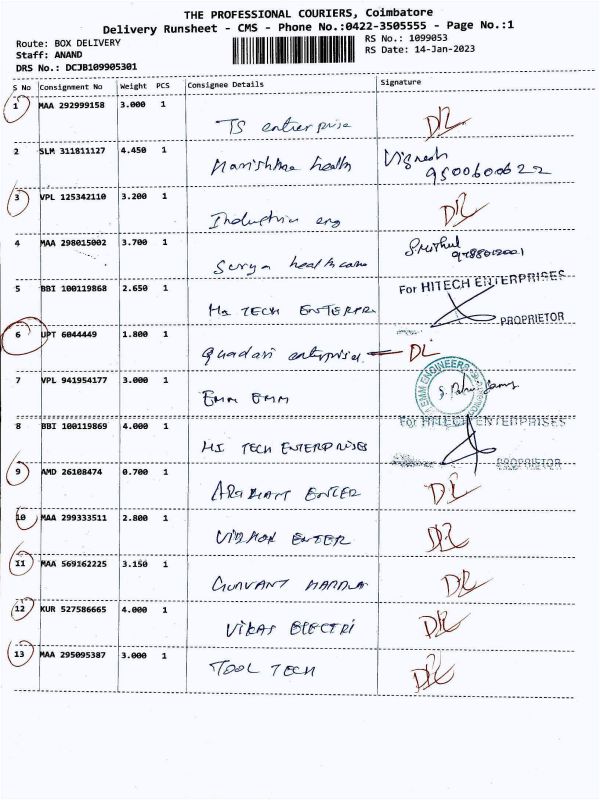 THE PROFESSIONAL COURIERS, Coimbatore
Delivery Runsheet - CMS - Phone No.:0422-3505555 - Page No.:1
Route: BOX DELIVERY
RS No.: 1099053
Staff: ANAND
RS Date: 14-Jan-2023
DRS No.: DCJB109905301
S No Consignment No Weight PCS Consignee Details Signature
1 MAA 292999158 3.000 1
TS enterprise DL
2 SLM 311811127 4.450 1
health Vignesh
9500600622
3 VPL 125342110 3.200 1
Industria eng DL
4 MAA 298015002 3.700 1
Surya healthcare
5 BBI 100119868 2.650 1 For HITECH ENTERPRISES
TECH ENTERPRI PROPRIETOR
6 UPT 6044449 1.800 1
enterprises DL
7 VPL 941954177 3.000 1
EMM EMM EMM ENGINEERS
8 BBI 100119869 4.000 1 For HITECH ENTERPRISES
HI TECH ENTERPRISES PROPRIETOR
9 AMD 26108474 0.700 1
ARIHANT ENTER DL
10 MAA 299333511 2.800 1
ENTER DL
11 MAA 569162225 3.150 1
GURVANT DL
12 KUR 527586665 4.000 1
VIKAS ELECTRI DL
13 MAA 295095387 3.000 1
TOOL TECH DL